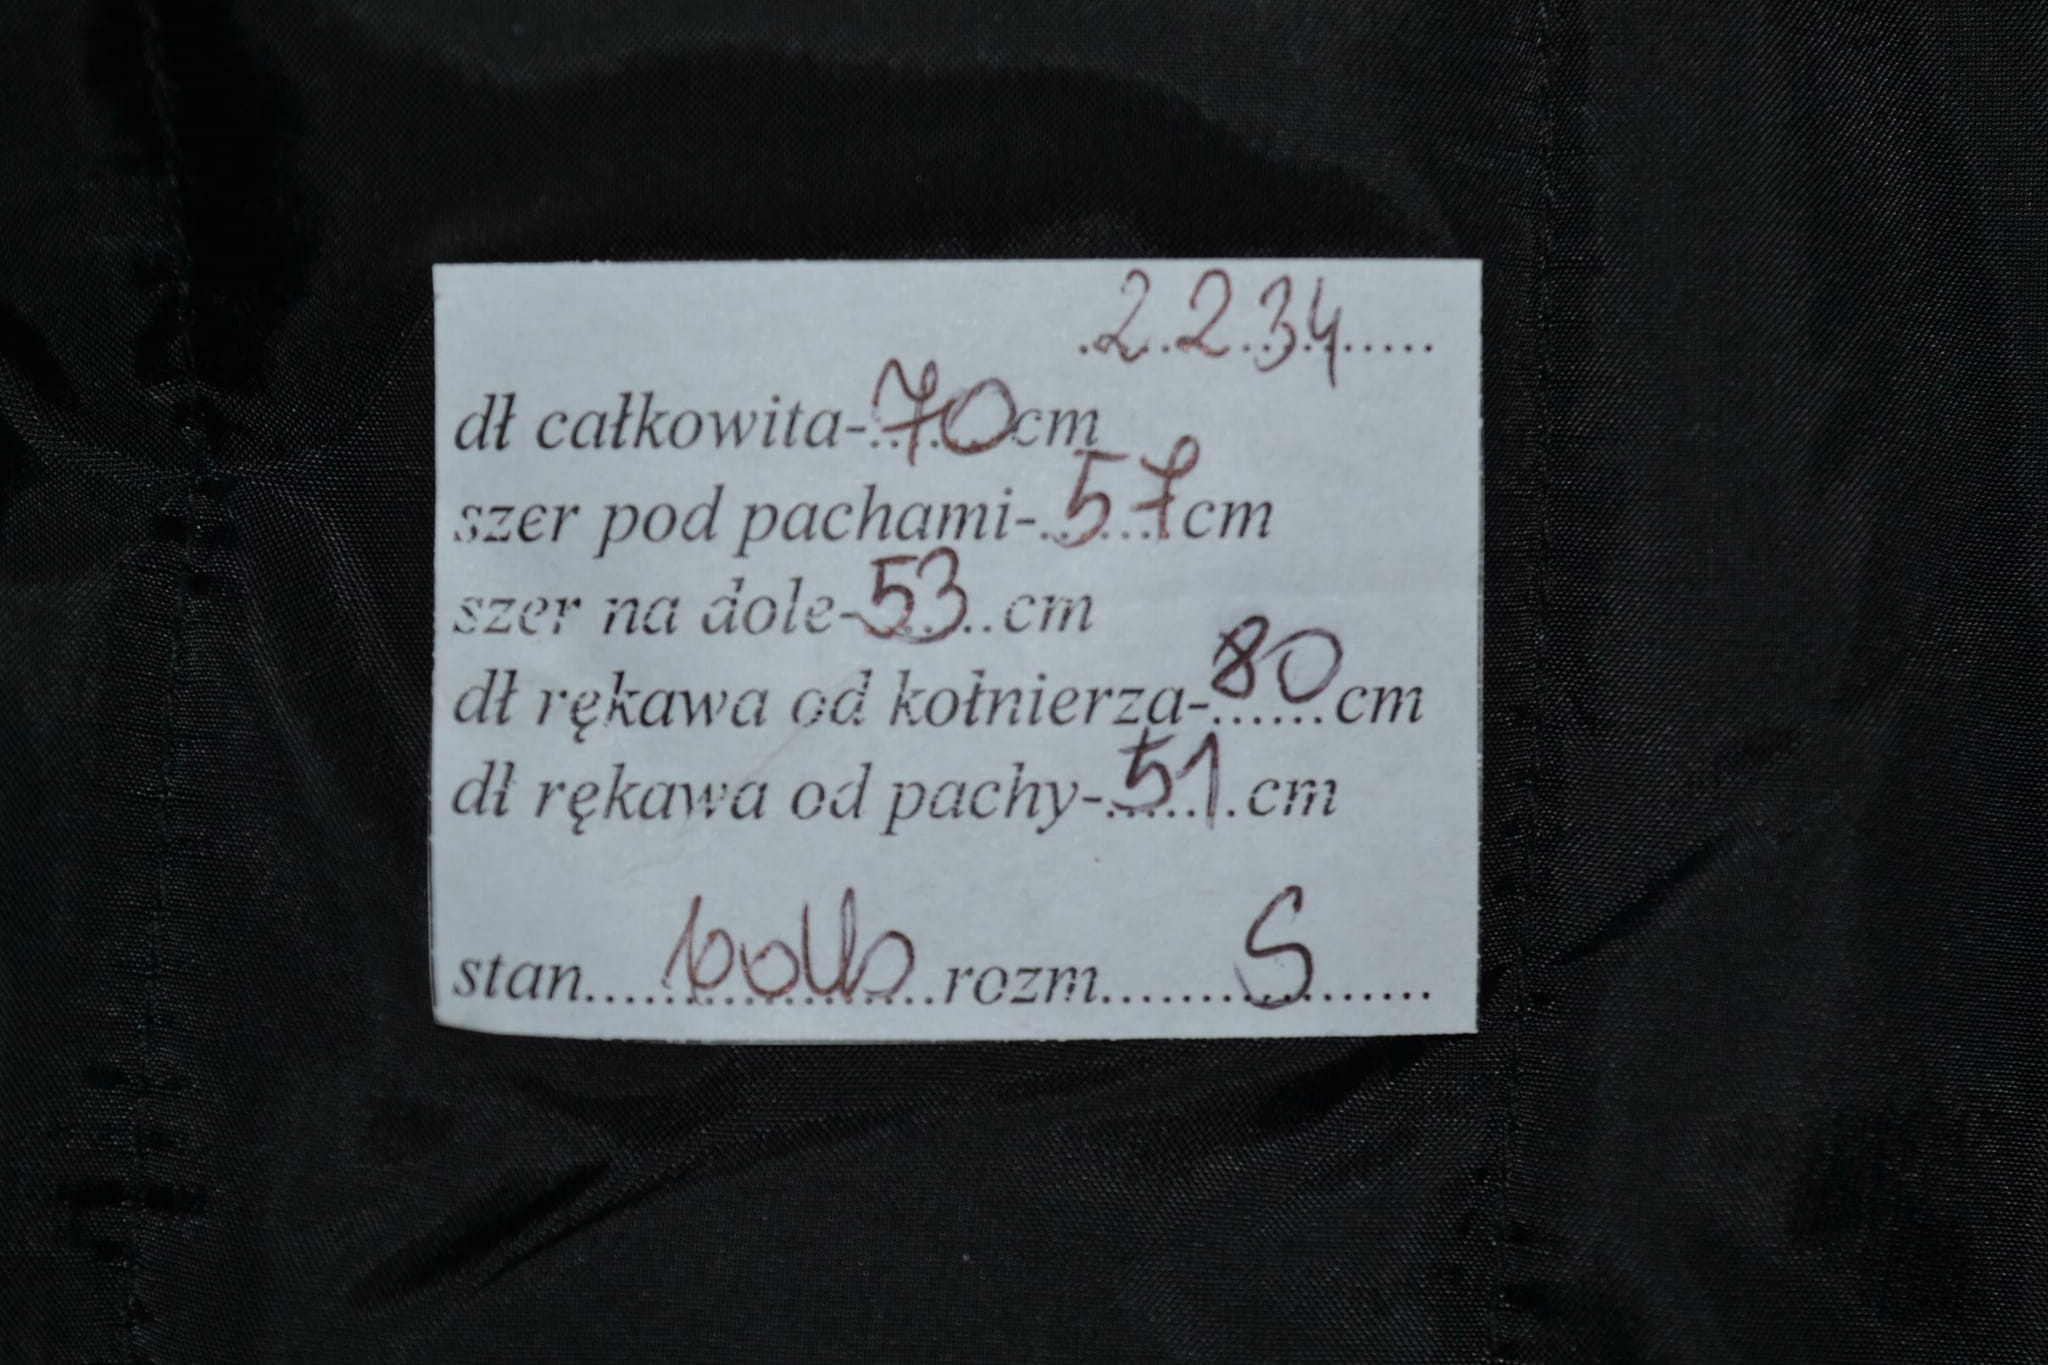 2234
dł całkowita-70cm
szer pod pachami-57cm
szer na dole-53 cm
dł rękawa od kołnierza-80cm
dł rękawa od pachy-51 cm
stan........ rozm........S